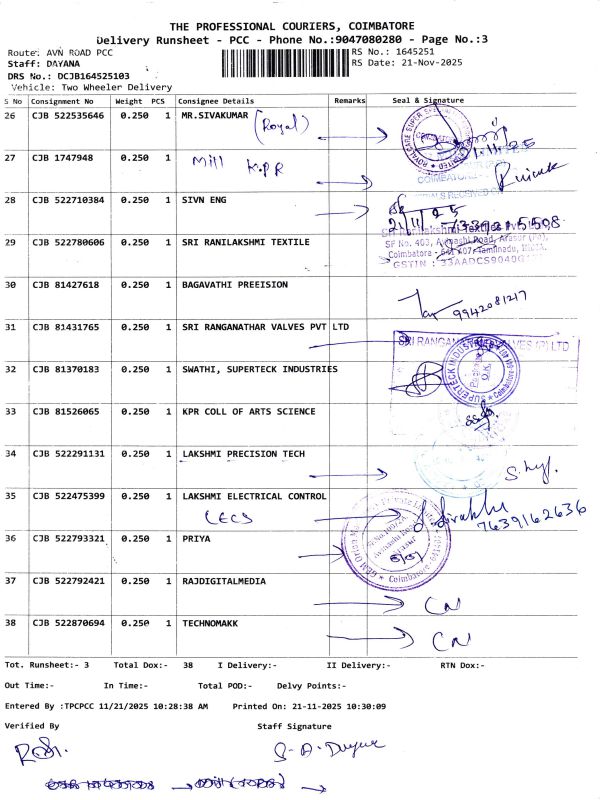 THE PROFESSIONAL COURIERS, COIMBATORE
Delivery Runsheet - PCC - Phone No.:9047080280 - Page No.:3
Route: AVN ROAD PCC RS No.: 1645251
Staff: DAYANA RS Date: 21-Nov-2025
DRS No.: DCJB164525103
Vehicle: Two Wheeler Delivery
S No Consignment No Weight PCS Consignee Details Remarks Seal & Signature
26 CJB 522535646 0.250 1 MR.SIVAKUMAR (Royal)
27 CJB 1747948 0.250 1 Mill K.P.R
28 CJB 522710384 0.250 1 SIVN ENG
21/11/25
29 CJB 522780606 0.250 1 SRI RANILAKSHMI TEXTILE
SF No. 403, Avinashi Road, Arasur (Po),
Coimbatore - 641 407, Tamilnadu,
30 CJB 81427618 0.250 1 BAGAVATHI PREEISION
9942081217
31 CJB 81431765 0.250 1 SRI RANGANATHAR VALVES PVT LTD
32 CJB 81370183 0.250 1 SWATHI, SUPERTECK INDUSTRIES
SUPERTECK INDUSTRIES
33 CJB 81526065 0.250 1 KPR COLL OF ARTS SCIENCE
34 CJB 522291131 0.250 1 LAKSHMI PRECISION TECH
35 CJB 522475399 0.250 1 LAKSHMI ELECTRICAL CONTROL
LECS 7639162636
36 CJB 522793321 0.250 1 PRIYA
37 CJB 522792421 0.250 1 RAJDIGITALMEDIA
CN
38 CJB 522870694 0.250 1 TECHNOMAKK
CN
Tot. Runsheet:- 3 Total Dox:- 38 I Delivery:- II Delivery:- RTN Dox:-
Out Time:- In Time:- Total POD:- Delvy Points:-
Entered By :TPCPCC 11/21/2025 10:28:38 AM Printed On: 21-11-2025 10:30:09
Verified By Staff Signature